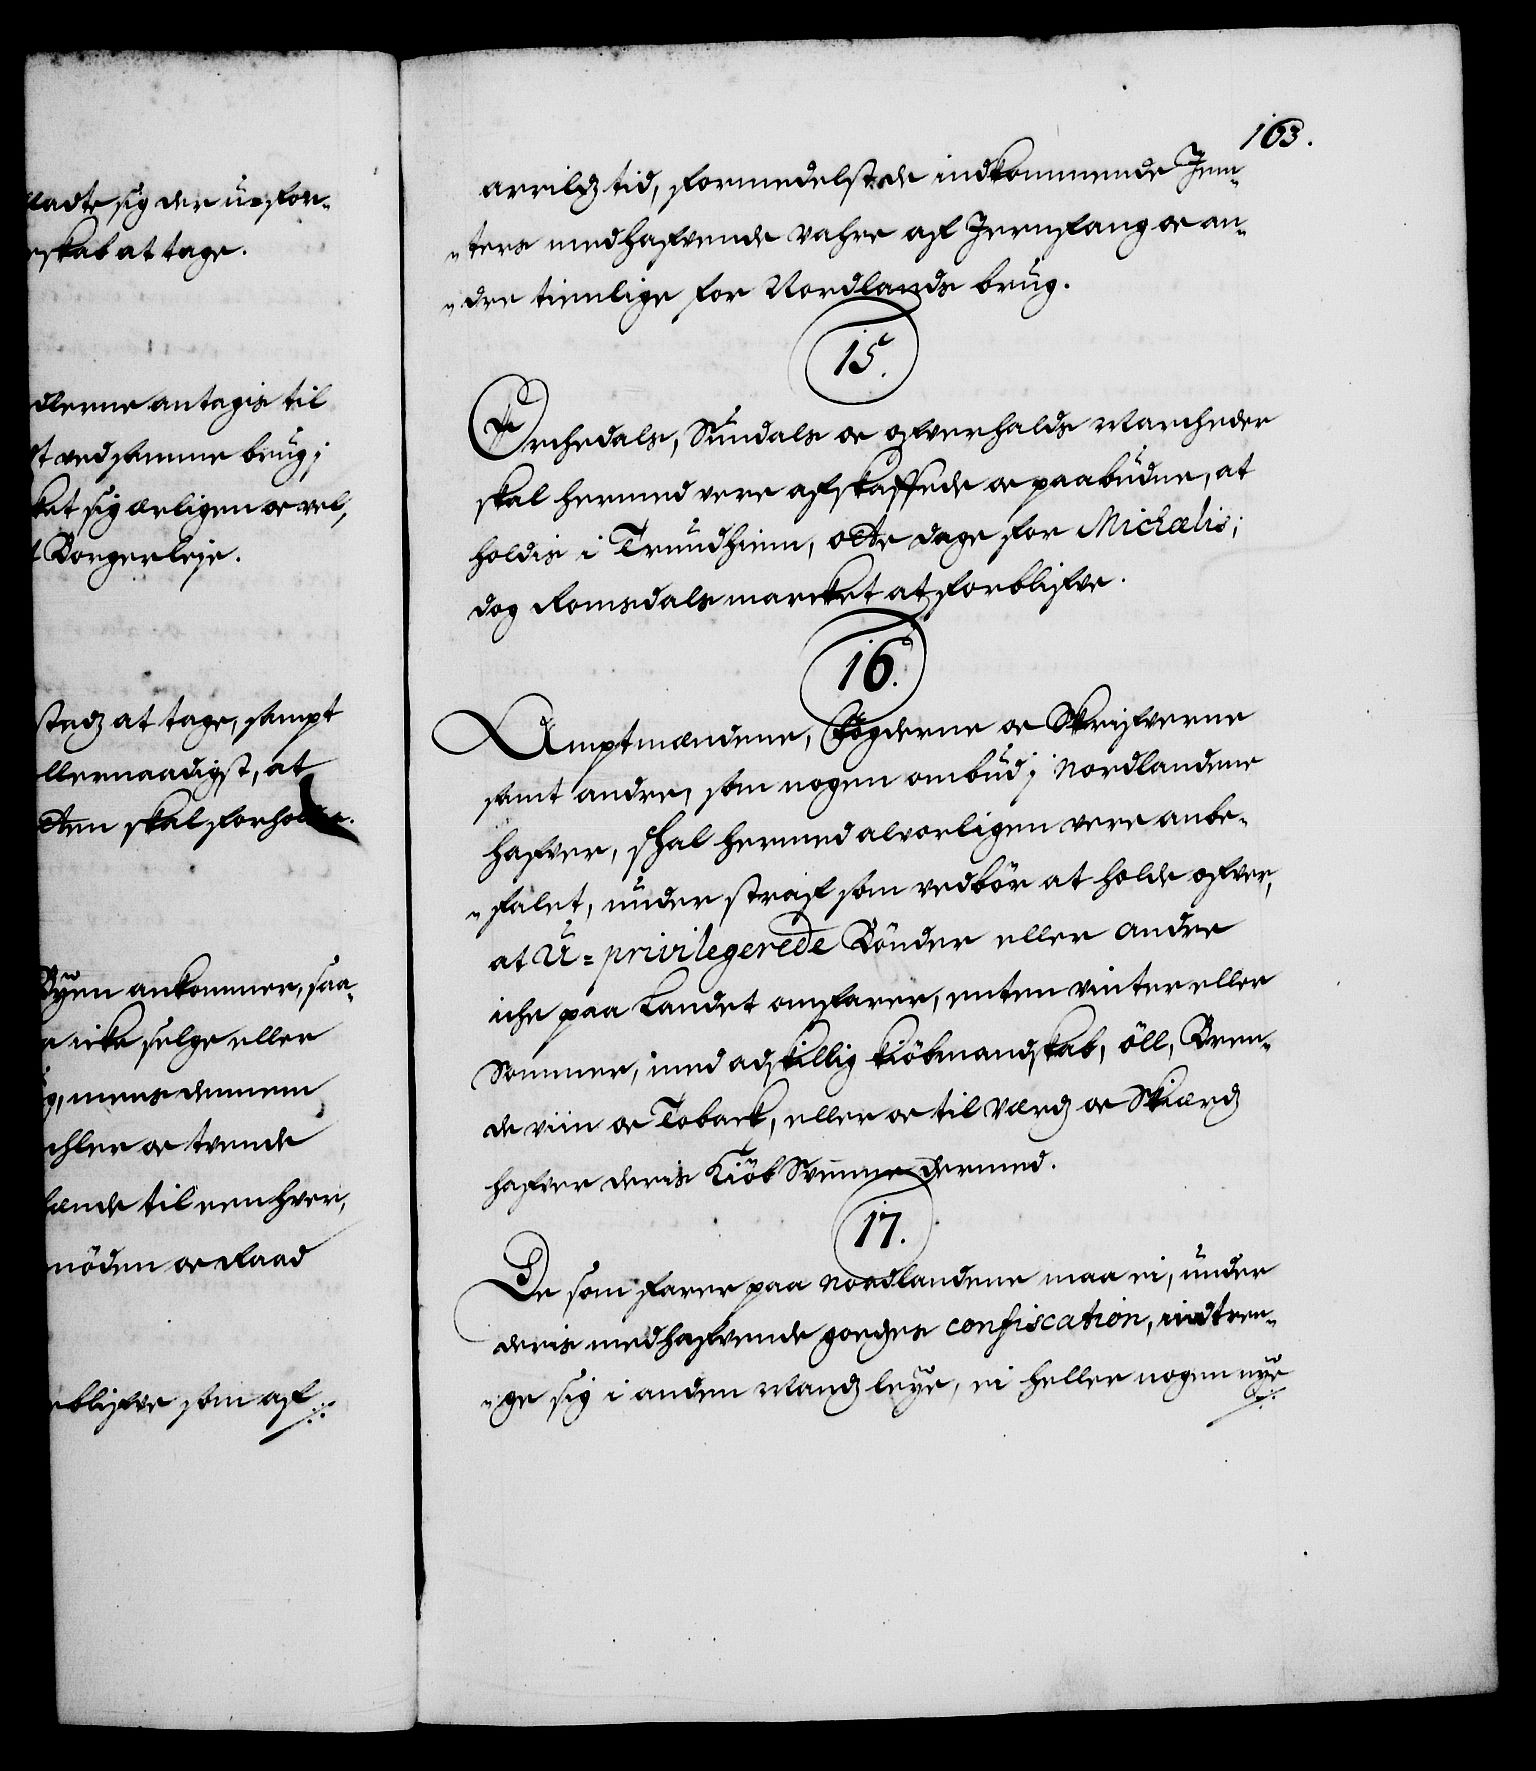 ladte sig der u=for¬
skab at tage.
dlerne antagis til
t ved samme brug;
ket sig ærligen oc vel,
t Borgerleje.
stedz at tage, sampt
llernaadigst, at
tten skal forholde.
Byen ankommer, saa¬
icke selge eller
g, mens dennem
chler oc tvende
lande til een hver,
nöden oc Raad
blifve som af
163.
arrildz tid, formedelst de indkommende Jem¬
¬ters medhafvende vahre af Jernfang oc an¬
¬dre tienlige for Nordlands brug.
15.
Orchedals, Sundals oc ofverhalds Marcheder
skal hermed vere afskaffede oc paabudne, at
holdis i Trundhiem, otte dage for Michælis;
dog Romsdals marcket at forblifve.
16.
Amptmændene, Fogderne oc Skrifverne
samt andre, som nogen ombud i Nordlandene
hafver, schal hermed alvorligen vere anbe¬
¬falet, under straf som vedbör at holde ofver,
at U=privilegerede Bönder eller andre
iche paa Landet omfarer, enten vinter eller
Sommer, med adskillig kiöbmandskab, öll, Bren¬
de viin oc Toback, eller oc til Værdz oc Skiærdz
hafver deris Kiöb Svenne dermed.
17.
De som farer paa Nordlandene maa ei, under
deris medhafvende goedzes confiscation, indtren¬
¬ge sig i anden Mandz leye, ei heller nogen nye